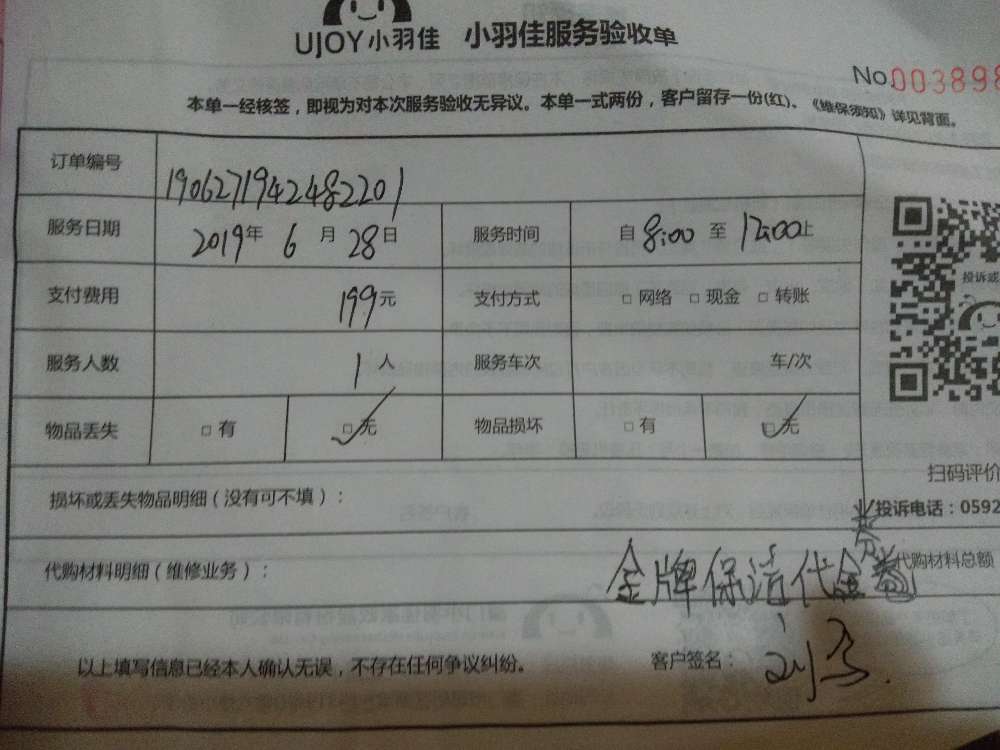 UJOY小羽佳 小羽佳服务验收单
No.003898
本单一经核签，即视为对本次服务验收无异议。本单一式两份，客户留存一份(红)、《维保须知》详见背面。
订单编号 1906271942482201
服务日期 2019年 6月 28日 服务时间 自 8:00 至 12:00止
支付费用 199元 支付方式 □网络 □现金 □转账
服务人数 1人 服务车次 车/次
物品丢失 □有 ☑无 物品损坏 □有 ☑无
投诉或
扫码评价
损坏或丢失物品明细（没有可不填）：
投诉电话：0592
代购材料明细（维修业务）： 代购材料总额
金牌保洁代金
以上填写信息已经本人确认无误，不存在任何争议纠纷。 客户签名：